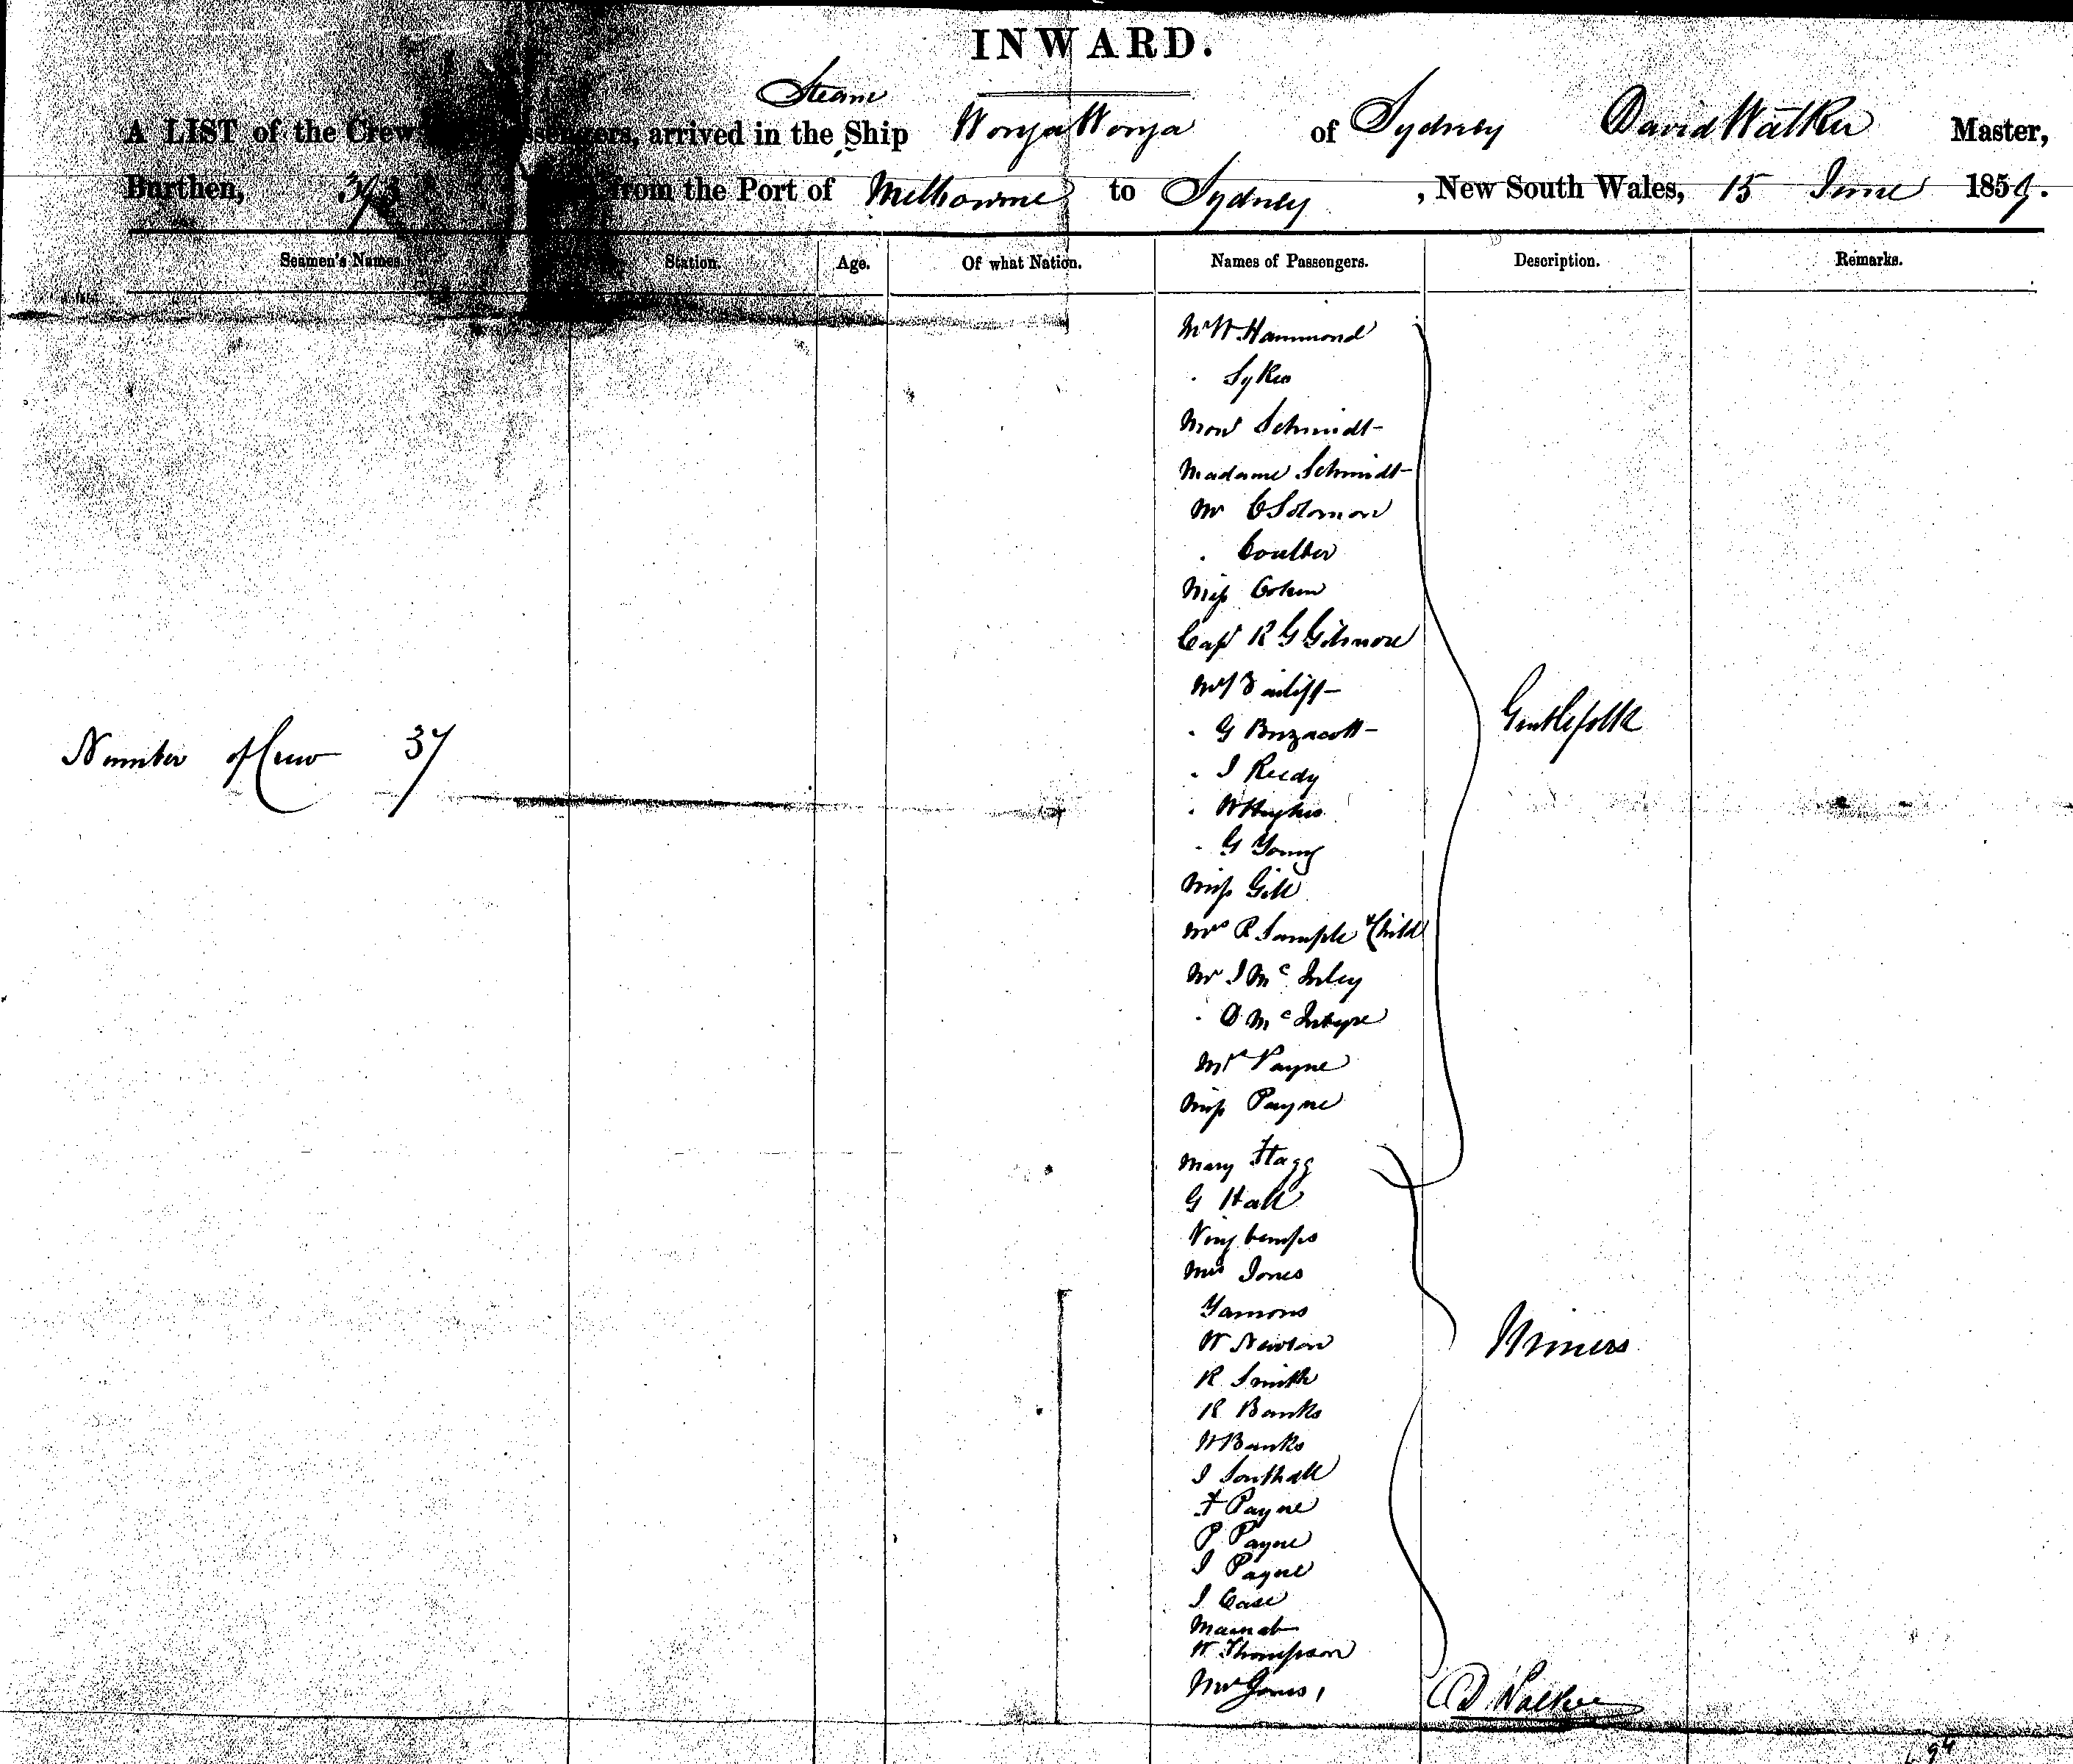 INWARD.
Steam
A LIST of the Crew Passengers, arrived in the Ship Wonga Wonga of Sydney David Walker Master,
Burthen, from the Port of Melbourne to Sydney, New South Wales, 15 June 1859.
Seamen's Names. Station. Age. Of what Nation. Names of Passengers. Description. Remarks.
Mr W Hammond
. Sykes
Mons Schmidt
Madame Schmidt
Mr C Solomon
. Coulter
Miss Cohen
Capt R G Gilmore
Mr
. G Buzacott
. J Reedy
. W Hughes
. G Young
Miss Gill
Mrs R Sample & Child
Mr J McInley
. D McIntyre
Mrs Payne
Miss Payne
Gentlefolk
Number of Crew 37
Mary Flagg
G Hall
Mrs Jones
W Newton
R Smith
R Banks
W Banks
J Southall
F Payne
P Payne
J Payne
J Case
W Thompson
Mrs Jones,
Miners
D. Walker